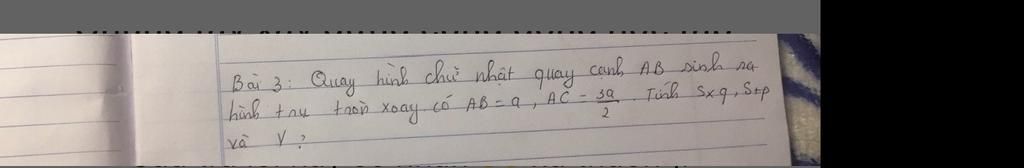 Bài 3: Quay hình chữ nhật quay cạnh AB sinh ra
hình trụ tròn xoay có AB = a, AC = 3a/2. Tính Sxq, Stp
và V?